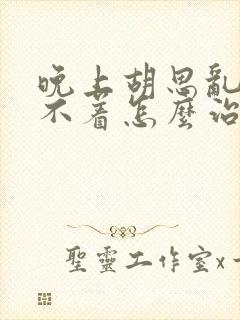 晚上胡思亂
不著怎麼治
聖靈工作室x